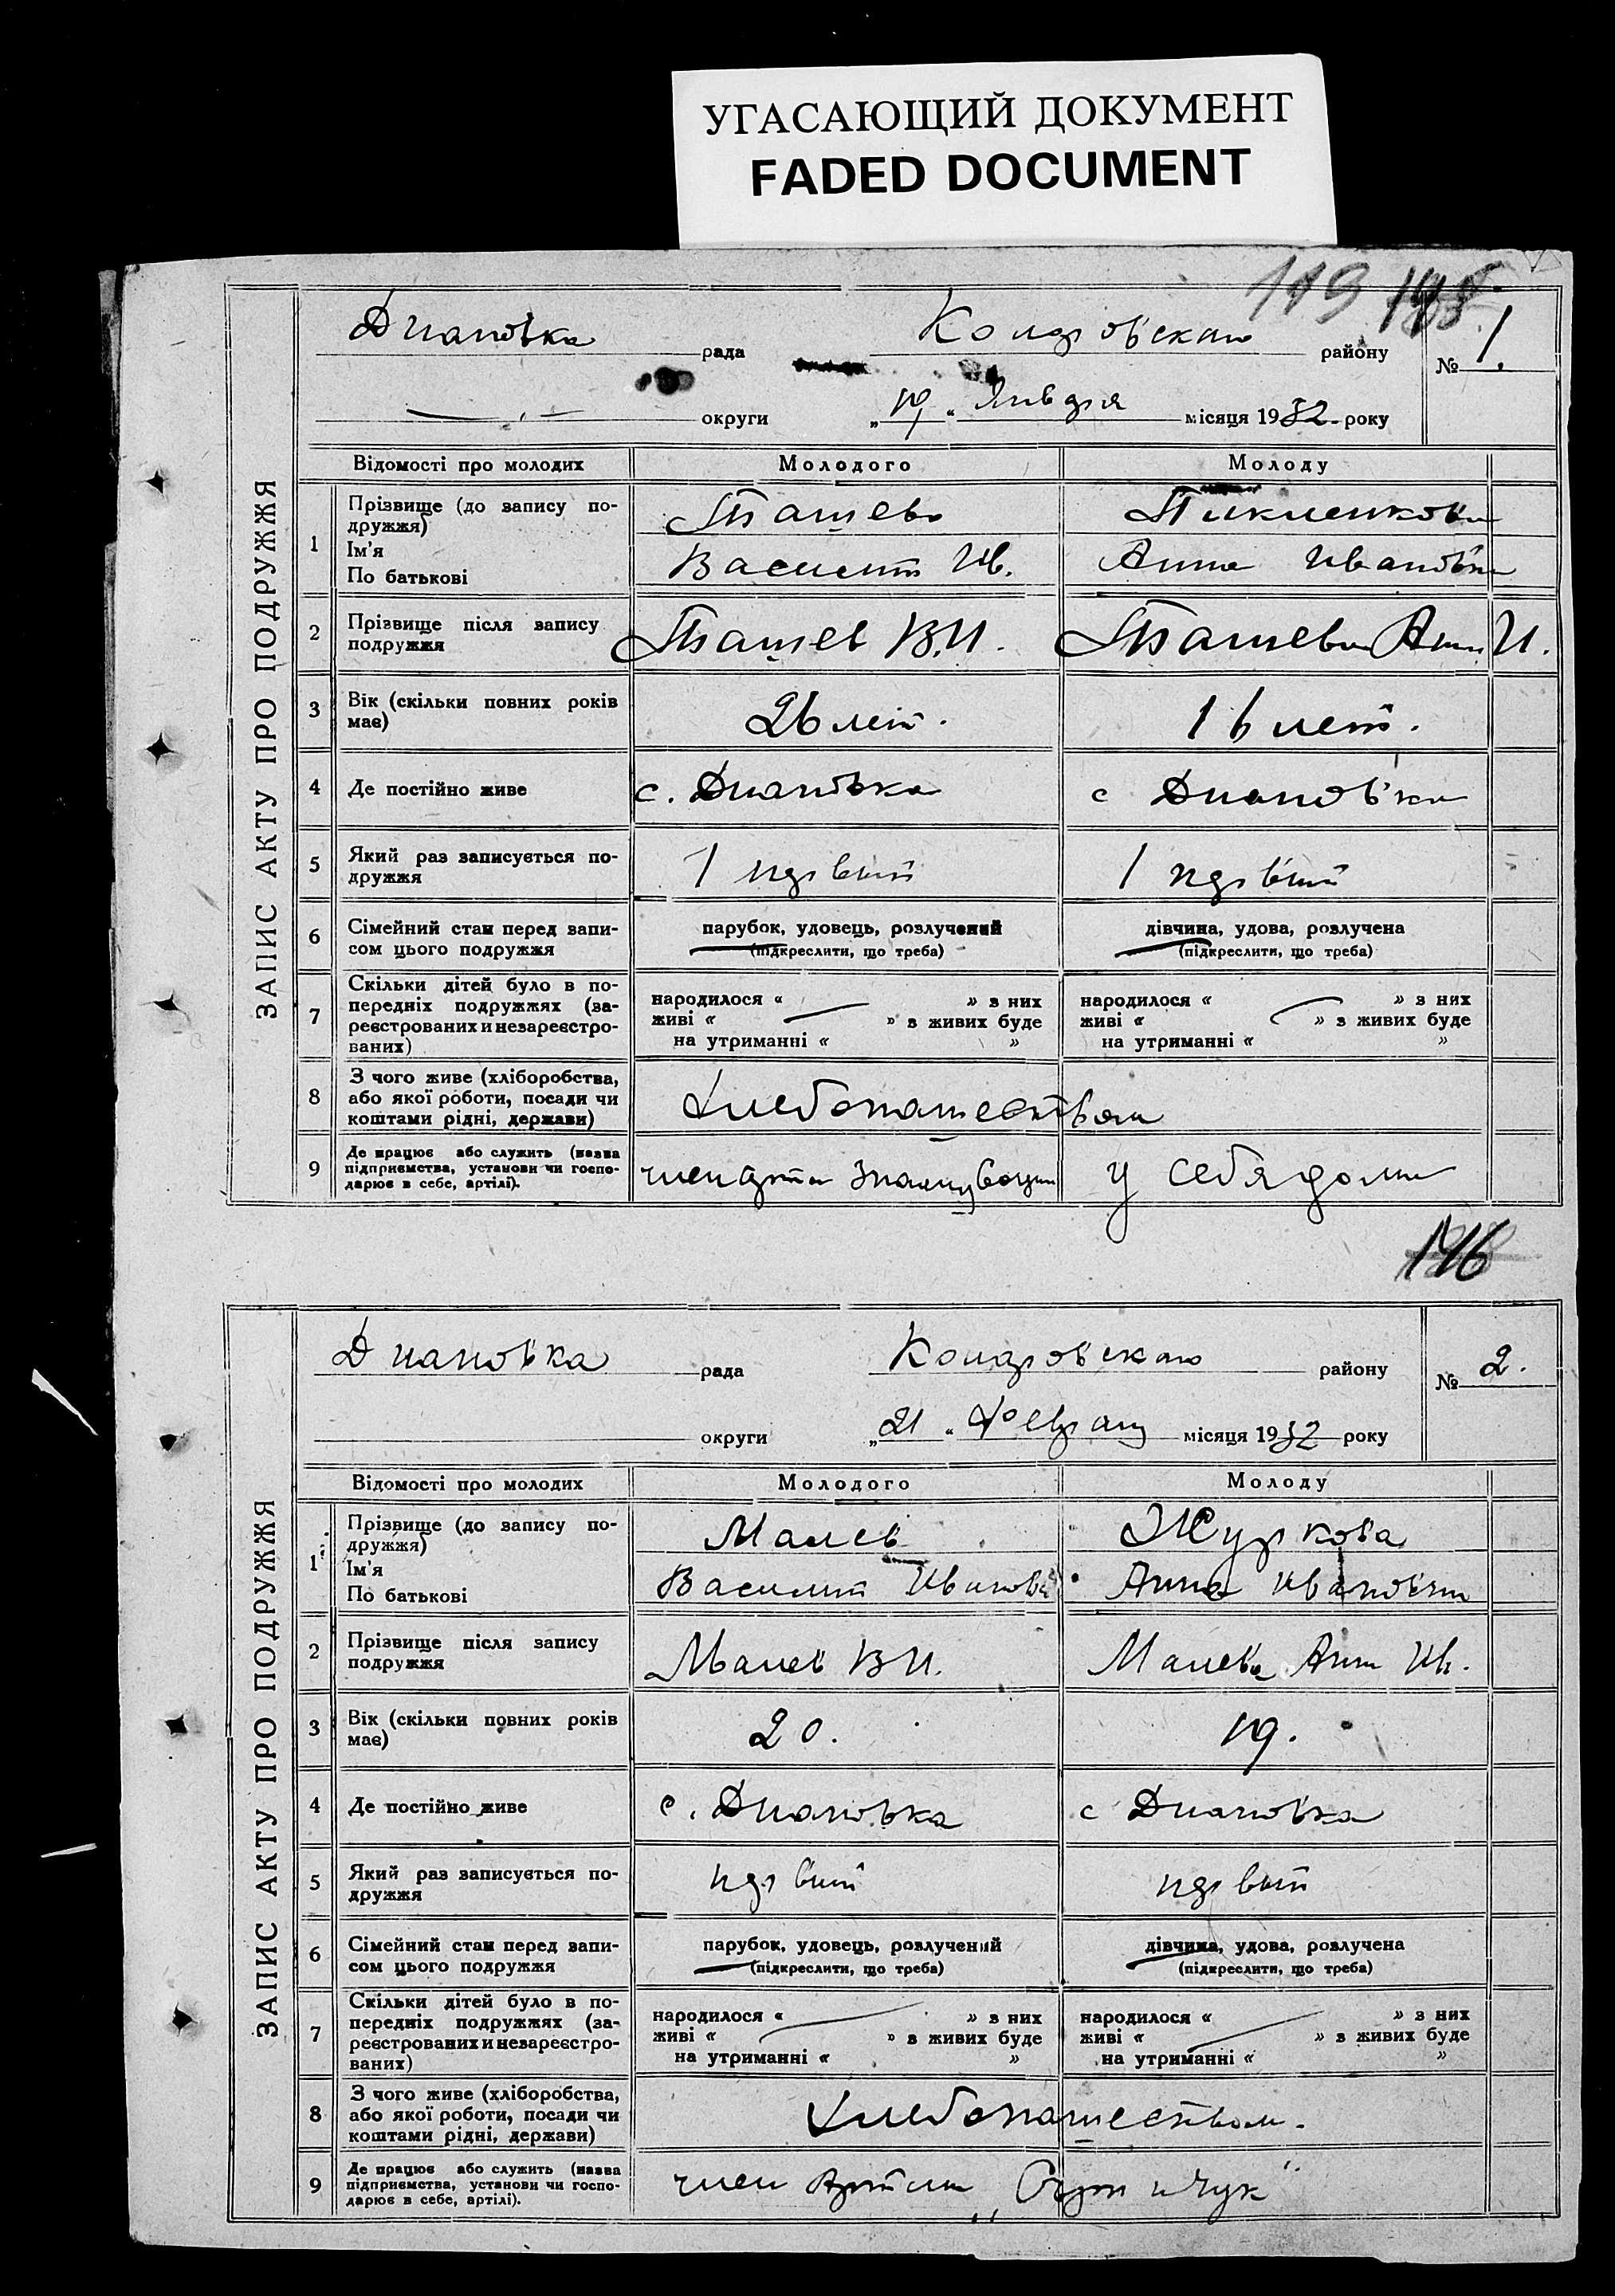 УГАСАЮЩИЙ ДОКУМЕНТ
FADED DOCUMENT
119
ЗАПИС АКТУ ПРО ПОДРУЖЖЯ
Диановка рада району № 1.
округи „19“ Января місяця 1932 року
Відомості про молодих Молодого Молоду
1 Прізвище (до запису по-
дружжя)
Ім'я
По батькові
Ташев
Василий Ив. Анна Ивановна
2 Прізвище після запису
подружжя
Ташев В.И. Ташева Анн И.
3 Вік (скільки повних років
має)
26 лет. лет.
4 Де постійно живе с. Диановка с Диановка
5 Який раз записується по-
дружжя
1 первый 1 первый
6 Сімейний стан перед запи-
сом цього подружжя
парубок, удовець, розлучений дівчина, удова, розлучена
(підкреслити, що треба) (підкреслити, що треба)
7 Скільки дітей було в по-
передніх подружжях (за-
реєстрованих и незареєстро-
ваних)
народилося « » з них народилося « » з них
живі « » з живих буде живі « » з живих буде
на утриманні « » на утриманні « »
8 З чого живе (хліборобства,
або якої роботи, посади чи
коштами рідні, держави)
Хлебопашеством
9 Де працює або служить (назва
підприємства, установи чи госпо-
дарює в себе, артілі).
член у себя дома
146
ЗАПИС АКТУ ПРО ПОДРУЖЖЯ
Диановка рада району № 2.
округи „21“ місяця 1932 року
Відомості про молодих Молодого Молоду
1 Прізвище (до запису по-
дружжя)
Ім'я
По батькові
Малев Журкова
Василий Иванов Анна Ивановна
2 Прізвище після запису
подружжя
Малев В И. Малева Анн Ив.
3 Вік (скільки повних років
має)
20. 19.
4 Де постійно живе с. Диановка с Диановка
5 Який раз записується по-
дружжя
первый первый
6 Сімейний стан перед запи-
сом цього подружжя
парубок, удовець, розлучений дівчина, удова, розлучена
(підкреслити, що треба) (підкреслити, що треба)
7 Скільки дітей було в по-
передніх подружжях (за-
реєстрованих и незареєстро-
ваних)
народилося « » з них народилося « » з них
живі « » з живих буде живі « » з живих буде
на утриманні « » на утриманні « »
8 З чого живе (хліборобства,
або якої роботи, посади чи
коштами рідні, держави)
Хлебопашеством.
9 Де працює або служить (назва
підприємства, установи чи госпо-
дарює в себе, артілі).
член Артели